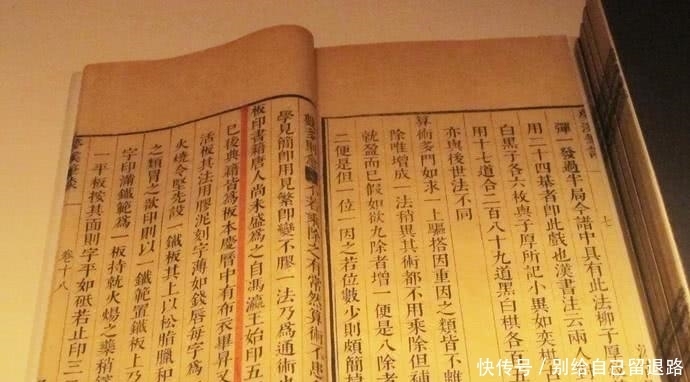 七
彈一發過半局今譜中具有此法柳子厚
用二十四棊者即此戲也漢書注云兩
白黑子各六枚與子厚所記小異如奕棋
用十七道合二百八十九道黑白棋各百
亦與後世法不同
算術多門如求一上驅搭因重因之類皆不
除唯增成一法稍異其術都不用乘除但補
就盈而已假如欲九除者增一便是八除者
二便是但一位一因之若位數少則頗簡
不若乘除之有常然算術不患
學見簡即用見繁即變不膠一法乃爲通術
板印書籍唐人尚未盛爲之自馮瀛王始印五
已後典籍皆爲板本慶曆中有布衣畢昇又
活板其法用膠泥刻字薄如錢唇每字爲
火燒令堅先設一鐵板其上以松脂臘和
之類冒之欲印則以一鐵範置鐵板上乃
字印滿鐵範爲一板持就火煬之藥稍
一平板按其面則字平如砥若止印三
夢溪筆談
卷十八
快传号／别给自己留退路